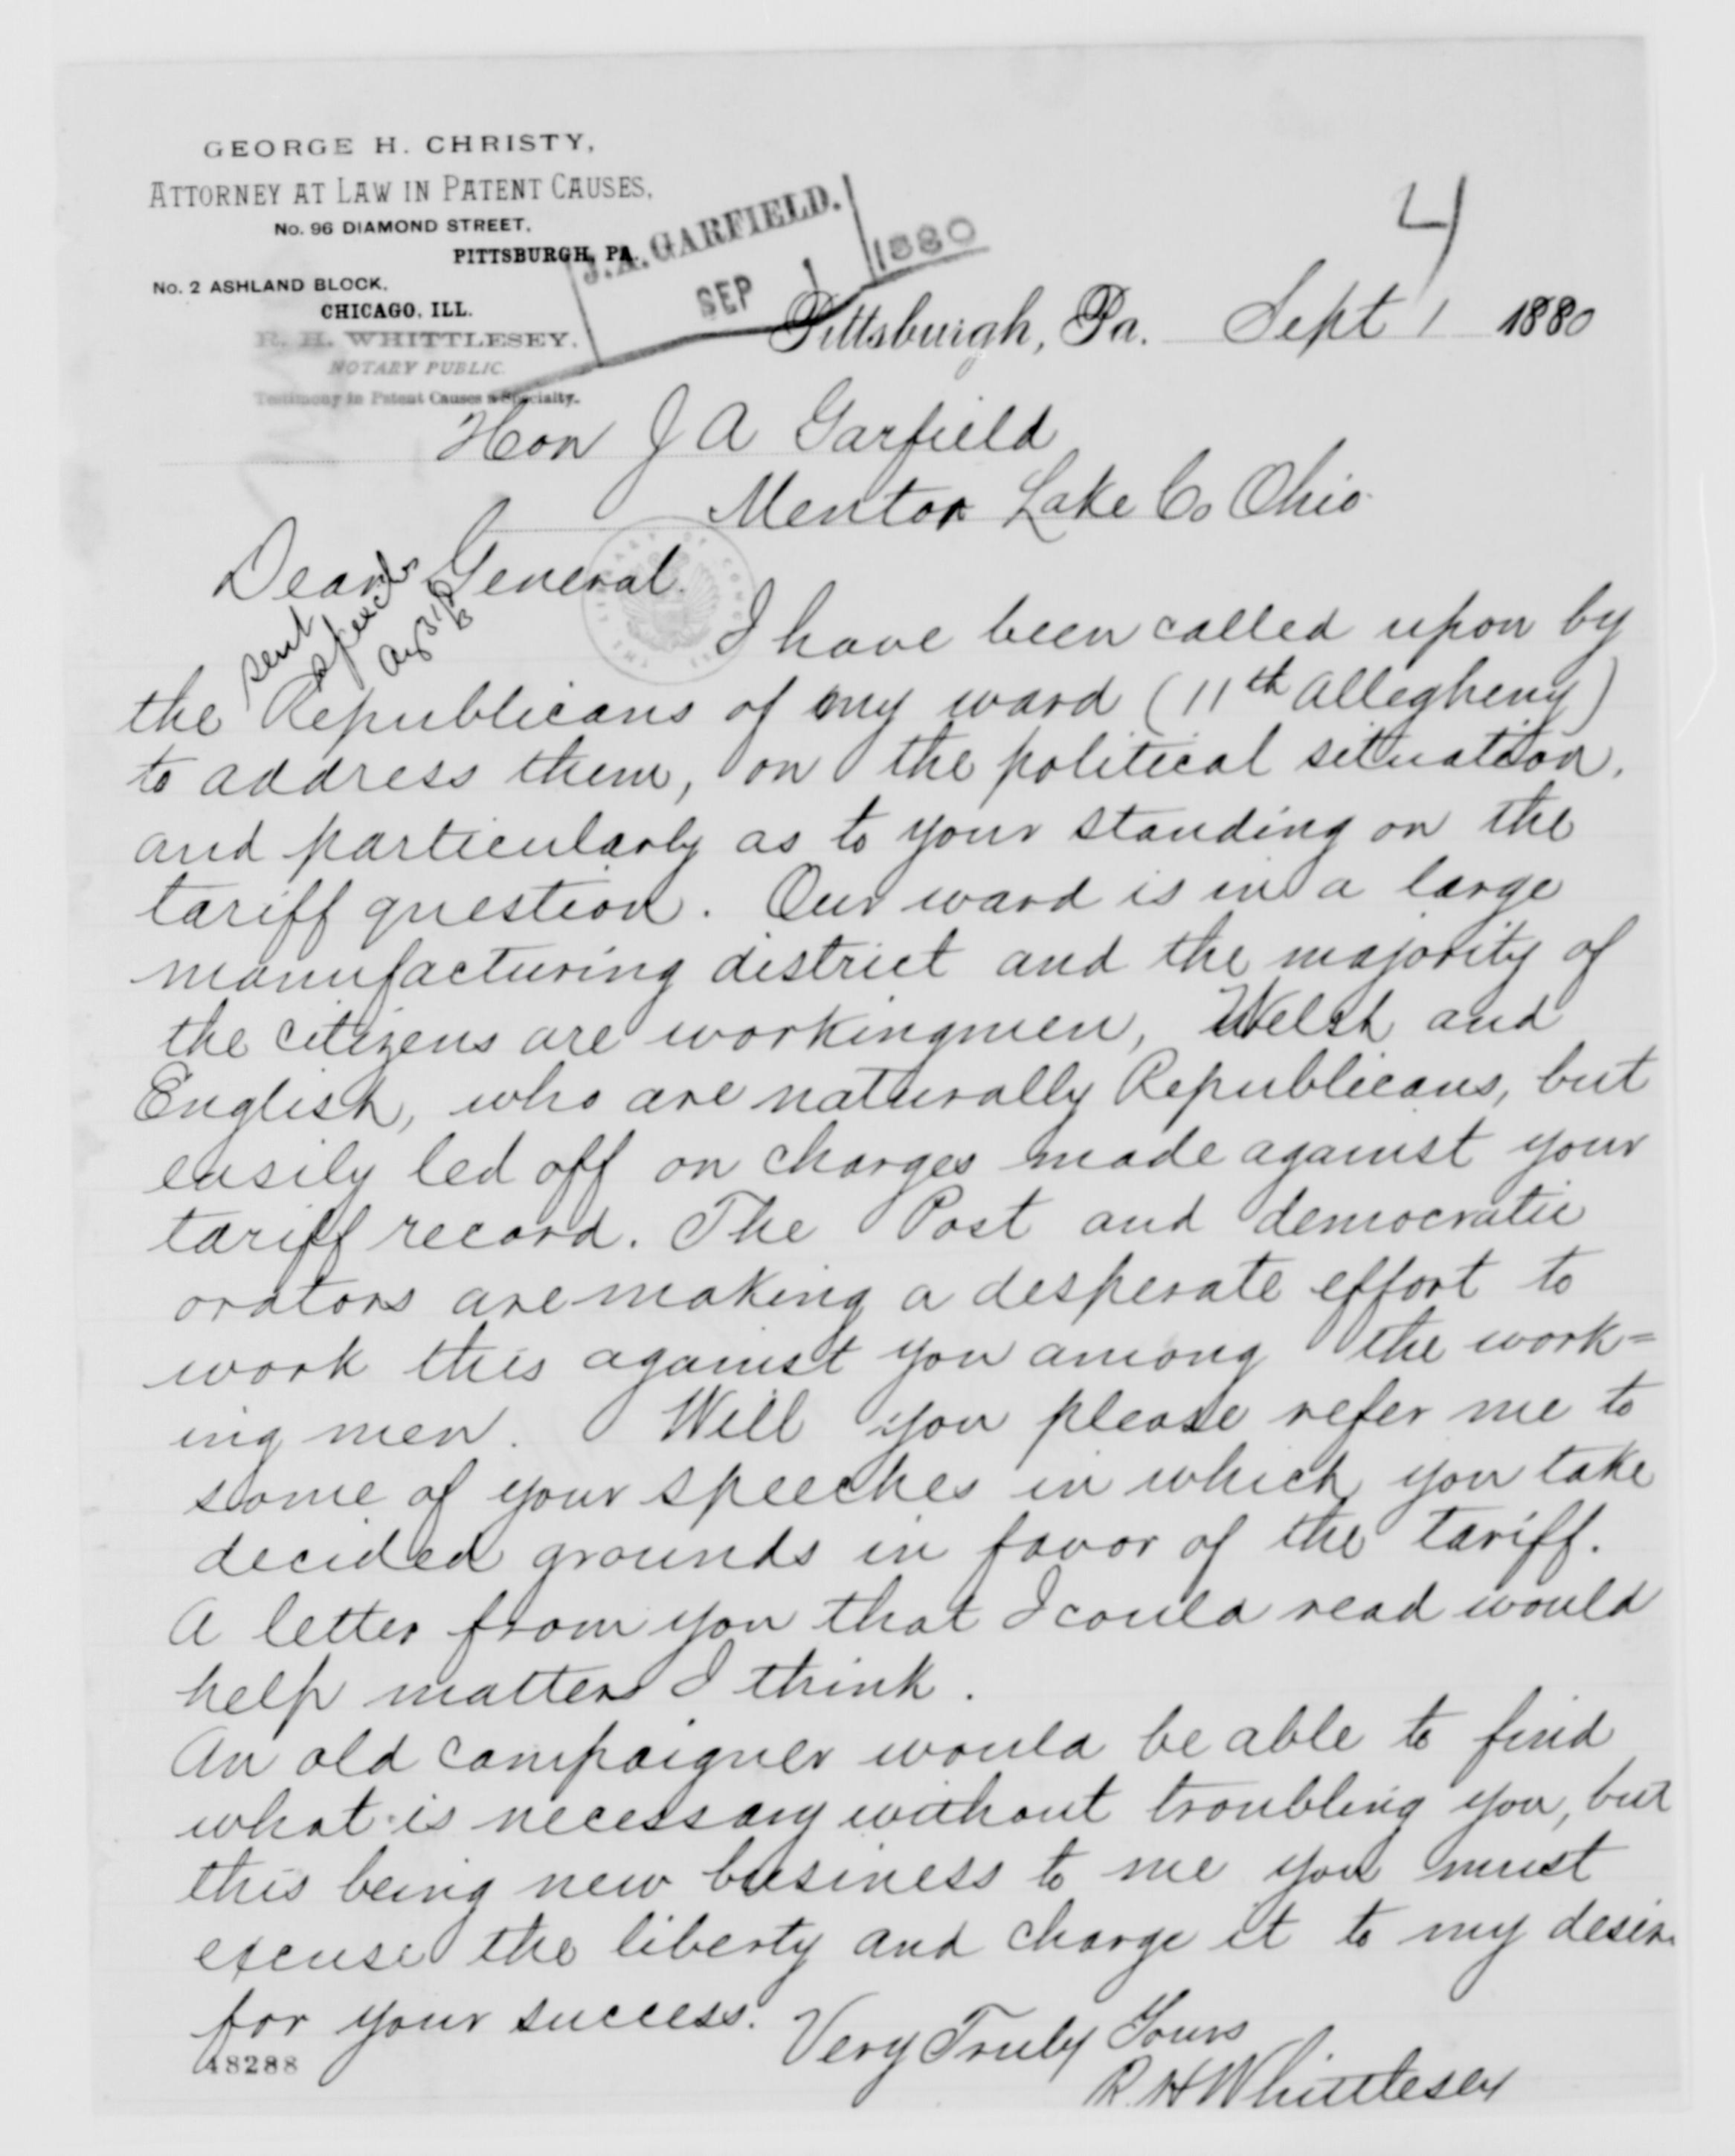 GEORGE H. CHRISTY,
ATTORNEY AT LAW IN PATENT CAUSES,
No. 96 DIAMOND STREET,
PITTSBURGH, PA.
No. 2 ASHLAND BLOCK,
CHICAGO, ILL.
R. H. WHITTLESEY,
NOTARY PUBLIC.
Testimony in Patent Causes a Specialty.
J. A. GARFIELD.
SEP 1 1880
4
Pittsburgh, Pa. Sept 1 1880
Hon J A Garfield
Mentor Lake Co Ohio
Dear General.
sent
speech
I have been called upon by
the Republicans of my ward (11th Allegheny)
to address them, on the political situation,
and particularly as to your standing on the
tariff question. Our ward is in a large
manufacturing district and the majority of
the citizens are workingmen, Welsh and
English, who are naturally Republicans, but
easily led off on charges made against your
tariff record. The Post and democratic
orators are making a desperate effort to
work this against you among the work=
ing men. Will you please refer me to
some of your speeches in which you take
decided grounds in favor of the tariff.
A letter from you that I could read would
help matters I think.
An old campaigner would be able to find
what is necessary without troubling you, but
this being new business to me you must
excuse the liberty and charge it to my desire
for your success.
Very Truly Yours
R. H Whittlesey
48288